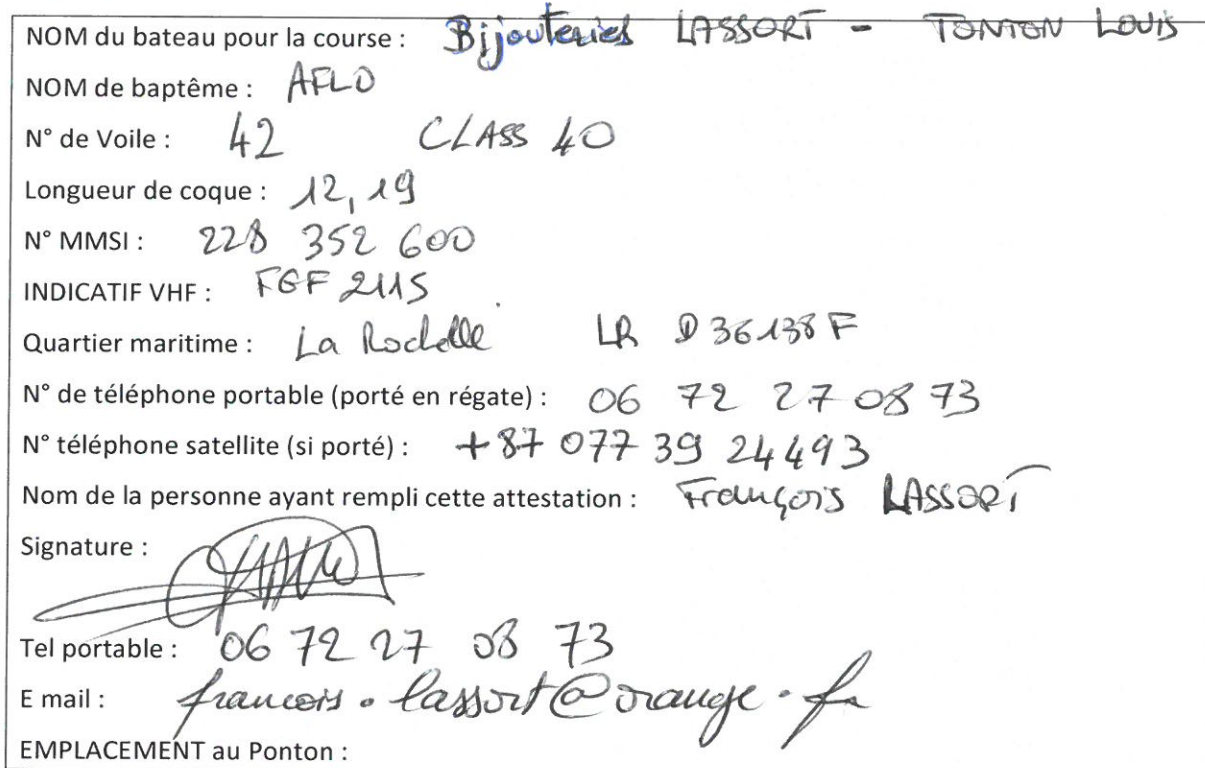 NOM du bateau pour la course : Bijouteries LASSORT - TONTON LOUIS
NOM de baptême : AFLO
N° de Voile : 42 CLASS 40
Longueur de coque : 12,19
N° MMSI : 228 352 600
INDICATIF VHF : FGF 2115
Quartier maritime : La Rochelle LR D36138F
N° de téléphone portable (porté en régate) : 06 72 27 08 73
N° téléphone satellite (si porté) : +87 077 39 24493
Nom de la personne ayant rempli cette attestation : François LASSORT
Signature :
Tel portable : 06 72 27 08 73
E mail : francois.lassort@orange.fr
EMPLACEMENT au Ponton :